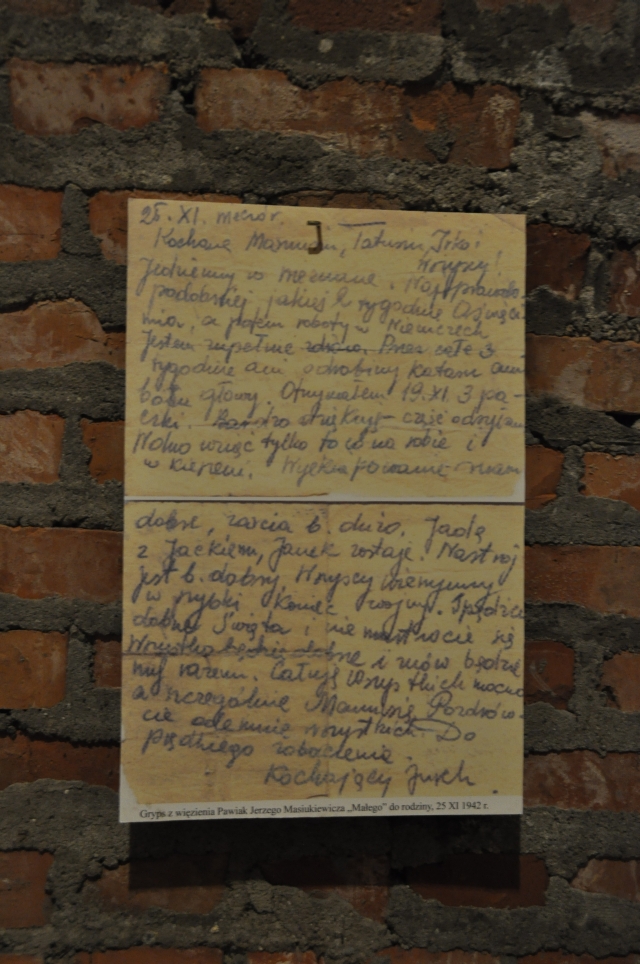 25. XI. wieczór.
Kochana Mamusiu, Tatusiu, Irko i
Wszyscy!
Jedziemy w nieznane. Najprawdo-
podobniej jakieś 2 tygodnie Oświęci-
mia, a potem roboty w Niemczech
Jestem zupełnie zdrów. Przez całe 3
tygodnie ani odrobiny kataru ani
bólu głowy. Otrzymałem 19.XI. 3 pa-
czki. część
Wolno wziąć tylko to co na sobie i
w kieszeni. mam
dobre, żarcia b. dużo. Jadę
z Jackiem, Janek zostaje. Nastrój
jest b. dobry. Wszyscy wierzymy
w szybki koniec wojny. Spędźcie
dobrze Święta i nie martwcie się
Wszystko będzie dobrze i znów będzie
my razem. Całuję wszystkich mocno
a szczególnie Mamusię Pozdrów-
cie odemnie wszystkich. Do
prędkiego zobaczenia.
Kochający Jurek.
Gryps z więzienia Pawiak Jerzego Masiukiewicza „Małego” do rodziny, 25 XI 1942 r.